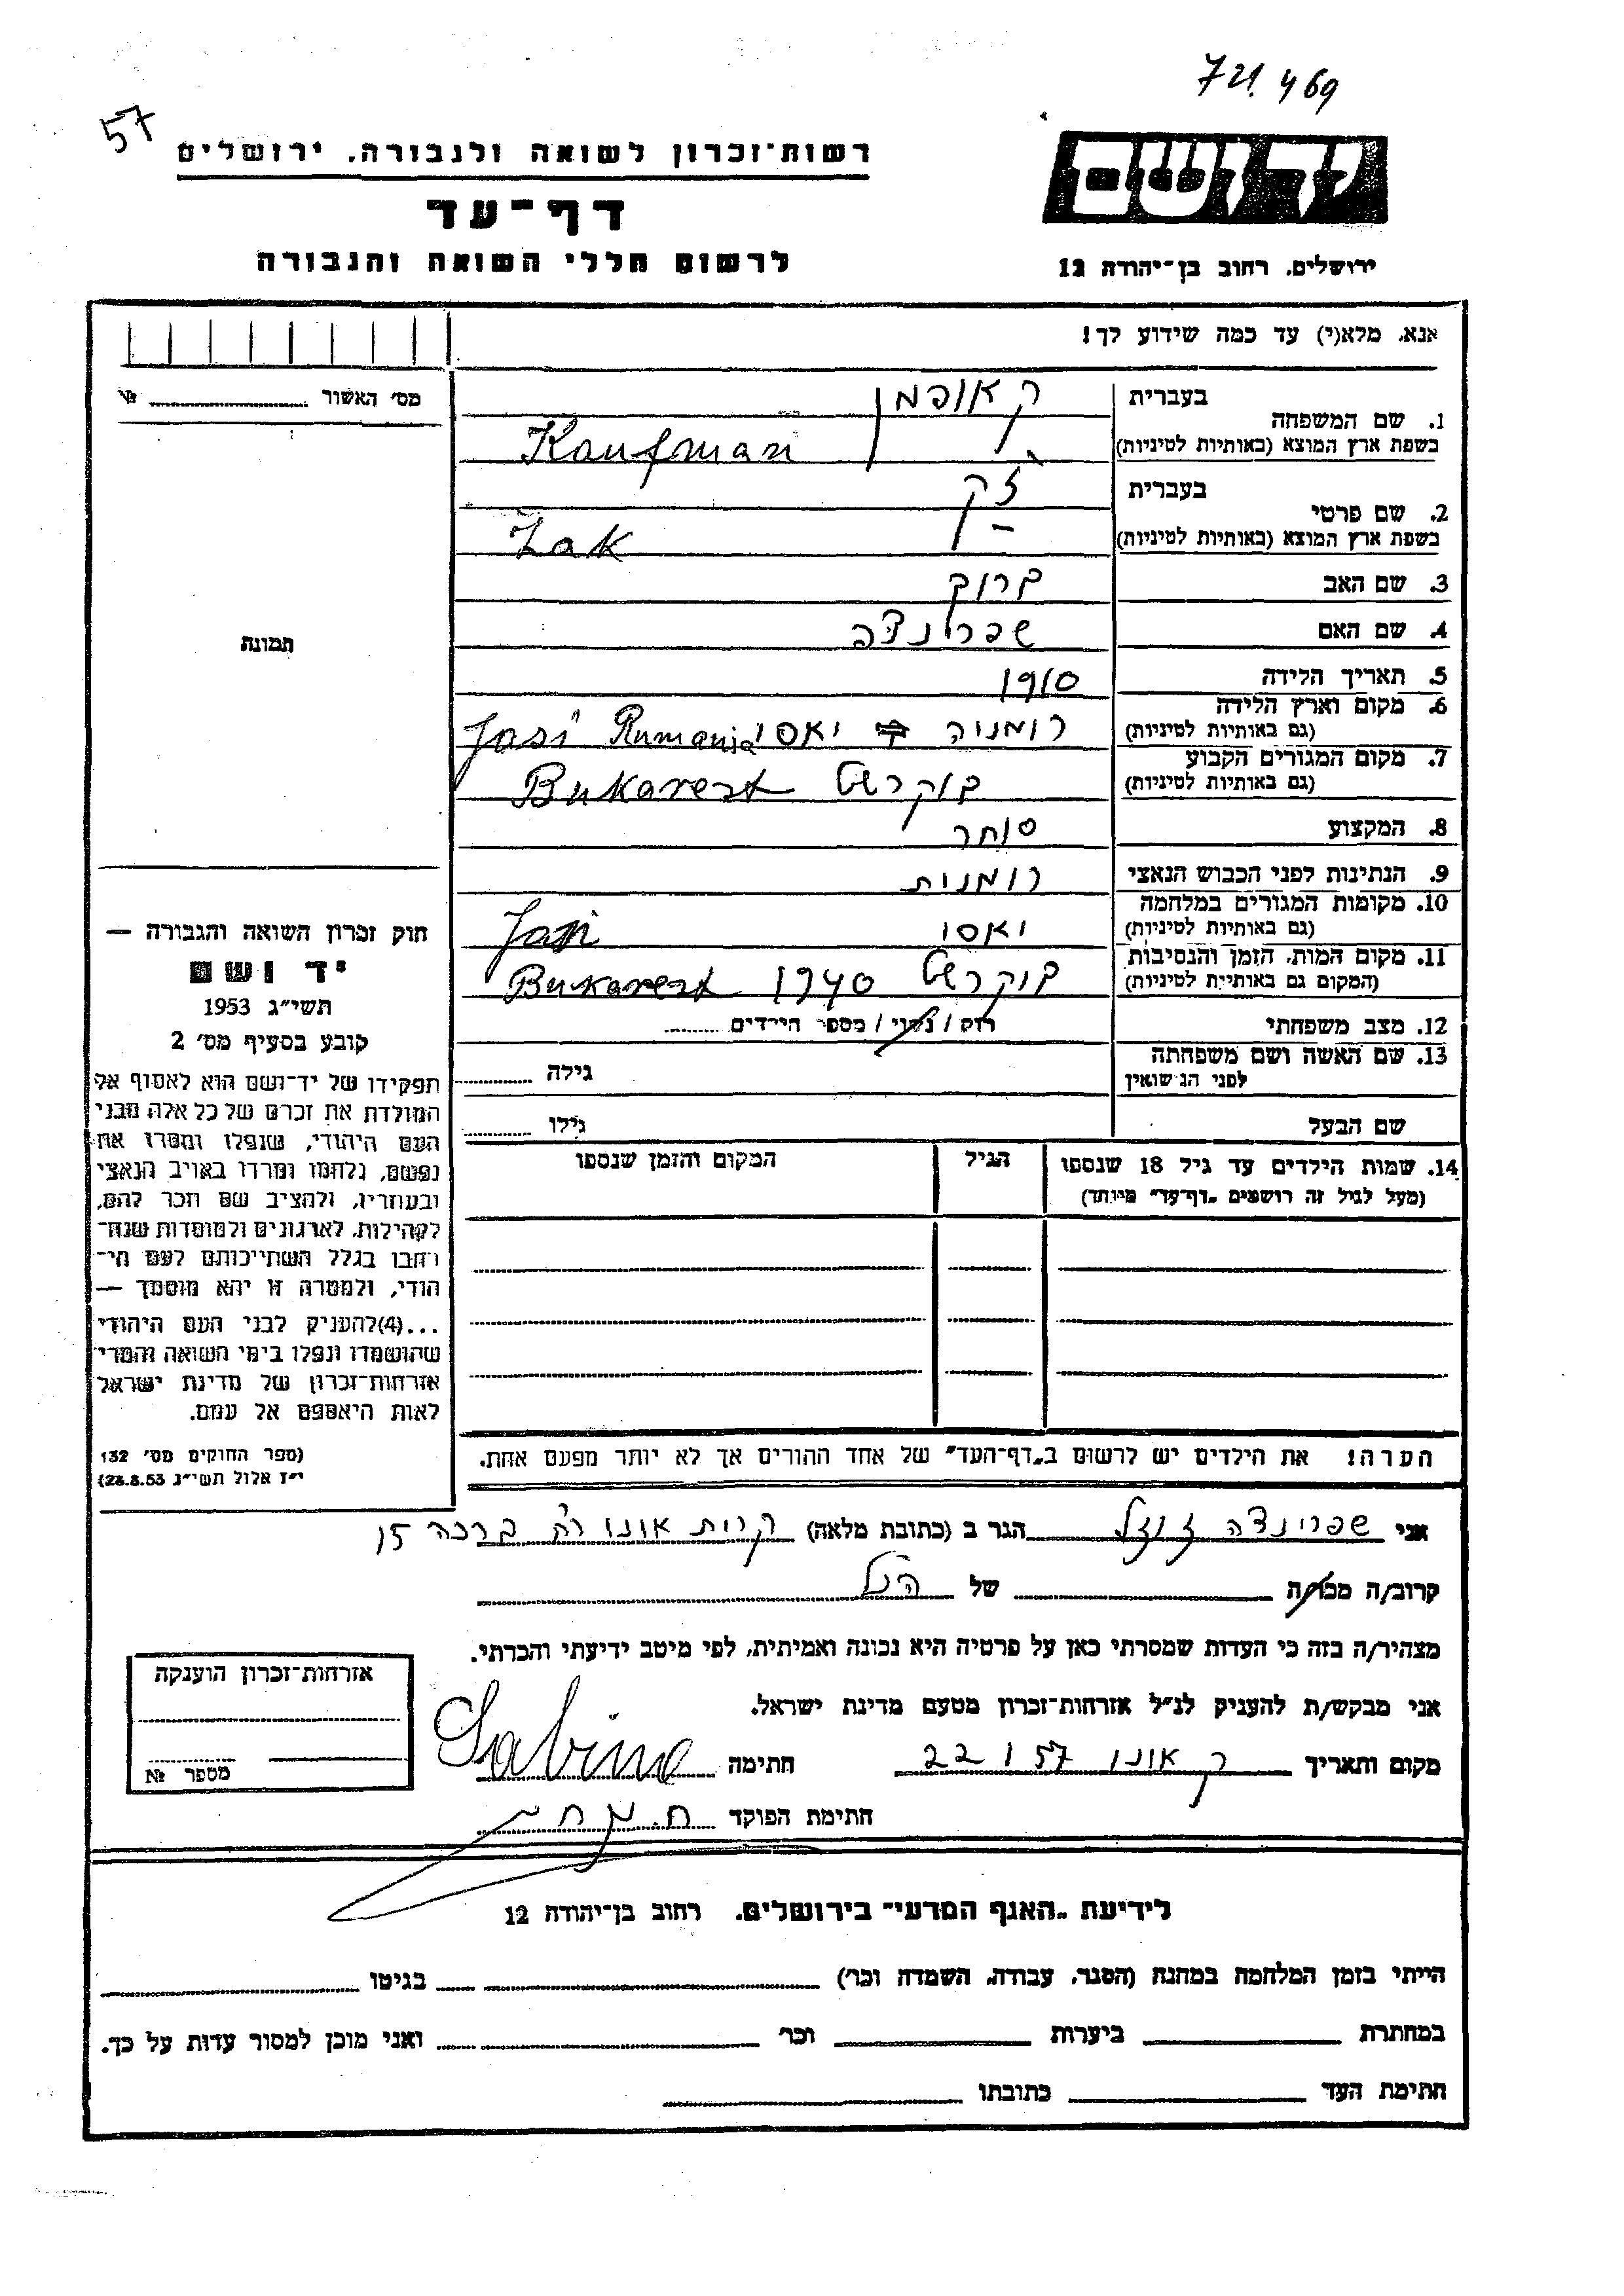 721.469
57
יד ושם
רשות־זכרון לשואה ולגבורה. ירושלים
דף־עד
לרשום חללי השואה והגבורה
ירושלים. רחוב בן־יהודה 12
אנא, מלא(י) עד כמה שידוע לך!
מס׳ האשור № 
תמונה
חוק זכרון השואה והגבורה —
יד ושם
תשי״ג 1953
קובע בסעיף מס׳ 2
תפקידו של יד־ושם הוא לאסוף אל
המולדת את זכרם של כל אלה מבני
העם היהודי, שנפלו ומסרו את
נפשם, נלחמו ומרדו באויב הנאצי
ובעוזריו, ולהציב שם וזכר להם,
לקהילות, לארגונים ולמוסדות שנח־
רבו בגלל השתייכותם לעם הי־
הודי, ולמטרה זו יהא מוסמך —
...(4)להעניק לבני העם היהודי
שהושמדו ונפלו בימי השואה והמרי
אזרחות־זכרון של מדינת ישראל
לאות היאספם אל עמם.
(ספר החוקים מס׳ 132
י״ז אלול תשי״ג 28.8.53)
1. שם המשפחה בעברית קאופמן
בשפת ארץ המוצא (באותיות לטיניות) Kaufman
2. שם פרטי בעברית זק
בשפת ארץ המוצא (באותיות לטיניות) Zak
3. שם האב ברוך
4. שם האם שפרינצה
5. תאריך הלידה 1910
6. מקום וארץ הלידה (גם באותיות לטיניות) רומניה יאסי Jasi Rumania
7. מקום המגורים הקבוע (גם באותיות לטיניות) בוקרשט Bukarest
8. המקצוע סוחר
9. הנתינות לפני הכבוש הנאצי רומנית
10. מקומות המגורים במלחמה (גם באותיות לטיניות) יאסי Jasi
11. מקום המות, הזמן והנסיבות (המקום גם באותיות לטיניות) בוקרשט 1940 Bukarest
12. מצב משפחתי רוק / נשוי / מספר הילדים
13. שם האשה ושם משפחתה לפני הנישואין גילה
שם הבעל גילו
14. שמות הילדים עד גיל 18 שנספו הגיל המקום והזמן שנספו
(מעל לגיל זה רושמים „דף־עד״ מיוחד)
הערה! את הילדים יש לרשום ב„דף־העד״ של אחד ההורים אך לא יותר מפעם אחת.
אני שפרינצה זנזל הגר ב (כתובת מלאה) קרית אונו רח׳ ברכה 15
קרוב/ה מכר/ה של הנ״ל
מצהיר/ה בזה כי העדות שמסרתי כאן על פרטיה היא נכונה ואמיתית, לפי מיטב ידיעתי והכרתי.
אני מבקש/ת להעניק לנ״ל אזרחות־זכרון מטעם מדינת ישראל.
מקום ותאריך ק אונו 22 1 57 חתימה Sabina
חתימת הפוקד
אזרחות־זכרון הוענקה
מספר №
לידיעת „האגף המדעי״ בירושלים. רחוב בן־יהודה 12
הייתי בזמן המלחמה במחנה (הסגר, עבודה, השמדה וכו׳) בגיטו
במחתרת ביערות וכו׳ ואני מוכן למסור עדות על כך.
חתימת העד כתובתו